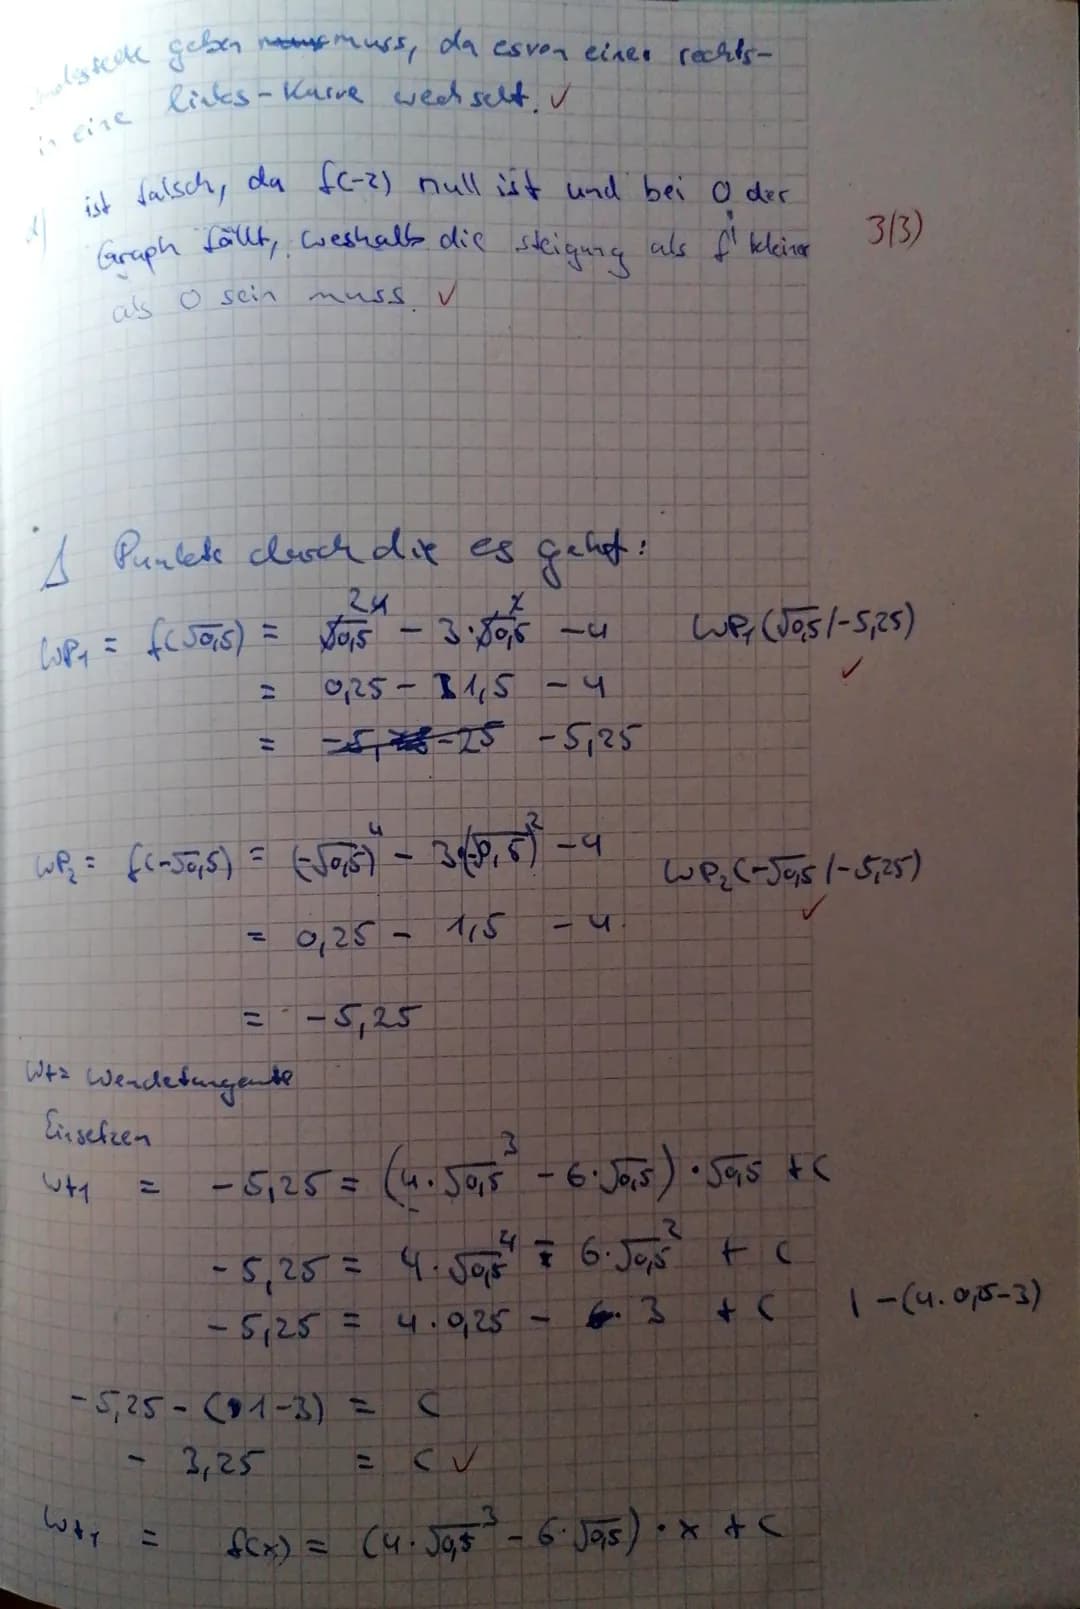 geben muss, da es von einer rechts-
in eine links-Kurve wechselt. ✓
ist falsch, da f(-2) null ist und bei 0 der
Graph fällt, weshalb die steigung als f' kleiner
als 0 sein muss. ✓
3(3)
Punkte durch die es gehet:
WP₁ = f(√0,5) = √0,5⁴ - 3·√0,5² - 4 WP₁(√0,5/-5,25) ✓
= 0,25 - 1,5 - 4
= -5,25
WP₂ = f(-√0,5) = (-√0,5)⁴ - 3(-√0,5)² - 4 WP₂(-√0,5/-5,25) ✓
= 0,25 - 1,5 - 4.
= -5,25
Wt = Wendetangente
Einsetzen
Wt1 = -5,25 = (4·√0,5³ - 6·√0,5)·√0,5 + c
-5,25 = 4·√0,5⁴ - 6·√0,5² + c
-5,25 = 4·0,25 - 3 + c | -(4·0,25-3)
-5,25 - (1-3) = c
-3,25 = c ✓
Wt1 = f(x) = (4·√0,5³ - 6·√0,5)·x + c